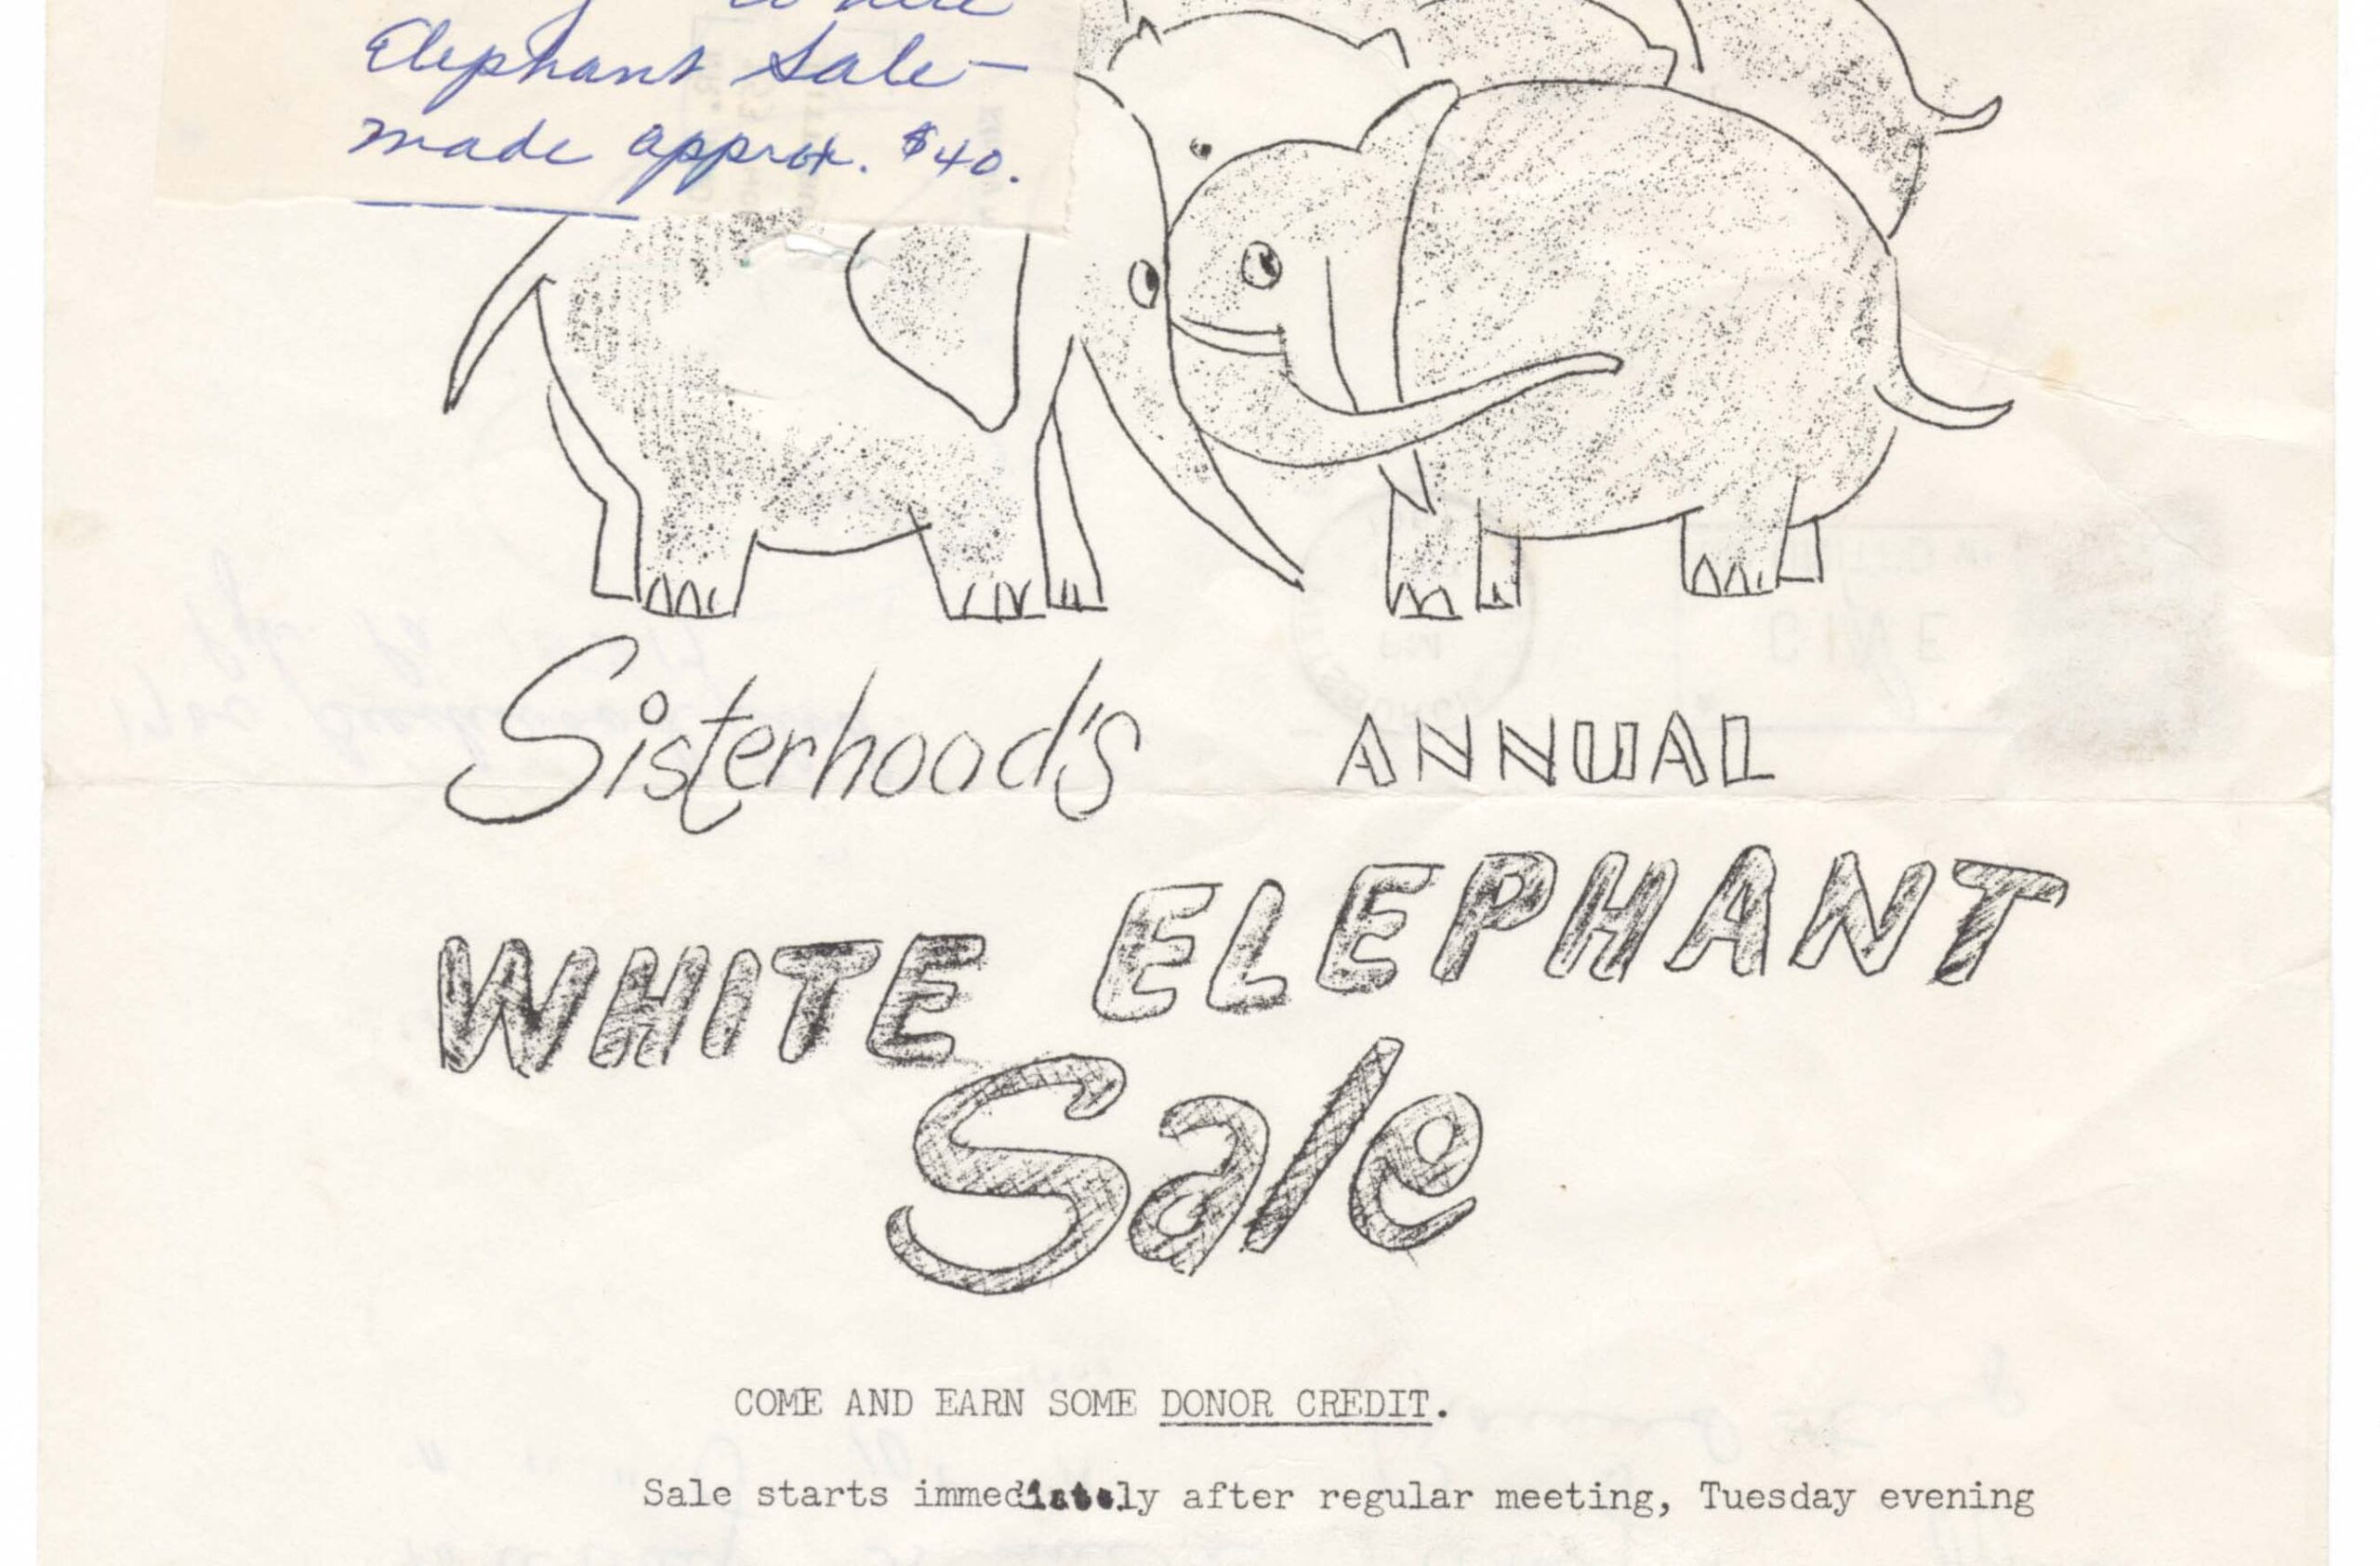 White
Elephant Sale—
made approx. $40.
Sisterhood's ANNUAL
WHITE ELEPHANT
Sale
COME AND EARN SOME DONOR CREDIT.
Sale starts immediately after regular meeting, Tuesday evening